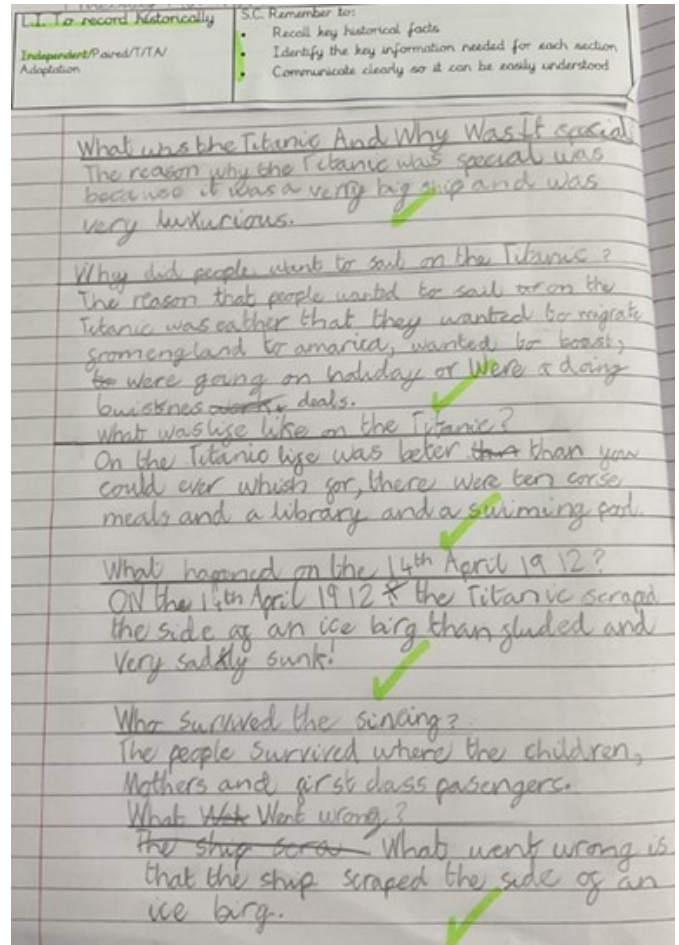 L.I. To record historically
Independent/Paired/T/TA/
Adaptation
S.C. Remember to:
• Recall key historical facts
• Identify the key information needed for each section
• Communicate clearly so it can be easily understood
What was the Titanic And Why Was It special
The reason why the Titanic was special was
because it was a verry big ship and was
very luxurious.
Why did people want to sail on the Titanic?
The reason that people wantid to sail on the
Titanic was eather that they wanted to migrate
from england to amarica, wanted to boast,
were going on holiday or were doing
buisknes deals.
What was life like on the Titanic?
On the Titanic life was beter than you
could ever whish for, there were ten corse
meals and a library and a swiming pool.
What happned on the 14th April 1912?
ON the 14th April 1912 the Titanic scrapd
the side of an ice birg than fluded and
very sadly sunk!
Who survived the sincing?
The people survived where the children,
Mothers and first class pasengers.
What Went wrong?
The ship scra What went wrong is
that the ship scraped the side of an
ice birg.